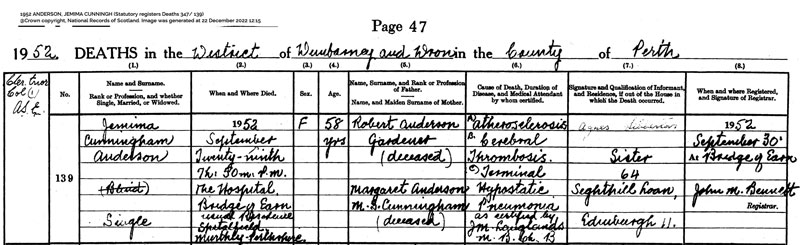 1952 ANDERSON, JEMIMA CUNNINGH (Statutory registers Deaths 347/ 139)
©Crown copyright, National Records of Scotland. Image was generated at 22 December 2022 12:15
Page 47
1952. DEATHS in the District of Dunbarney and Dron in the County of Perth
(1.) (2.) (3.) (4.) (5.) (6.) (7.) (8.)
Cler. Error
Col (1)
No.
Name and Surname.
Rank or Profession, and whether
Single, Married, or Widowed.
When and Where Died.
Sex.
Age.
Name, Surname, and Rank or Profession
of Father.
Name, and Maiden Surname of Mother.
Cause of Death, Duration of
Disease, and Medical Attendant
by whom certified.
Signature and Qualification of Informant,
and Residence, if out of the House in
which the Death occurred.
When and where Registered,
and Signature of Registrar.
139
Jemima
Cunningham
Anderson
(Blind)
Single
1952
September
Twenty-ninth
7h. 30m. P.M.
The Hospital,
Bridge of Earn
usual residence
Murthly Perthshire
F
58
yrs
Robert Anderson
Gardener
(deceased)
Margaret Anderson
M.S. Cunningham
(deceased)
A) Atherosclerosis
B. Cerebral
Thrombosis.
C) Terminal
Hypostatic
Pneumonia
as certified by
M.B. Ch. B
Agnes
Sister
64
Seghthill Loan,
Edinburgh 11.
1952
September 30
At Bridge of Earn
John M. Bennett
Registrar.